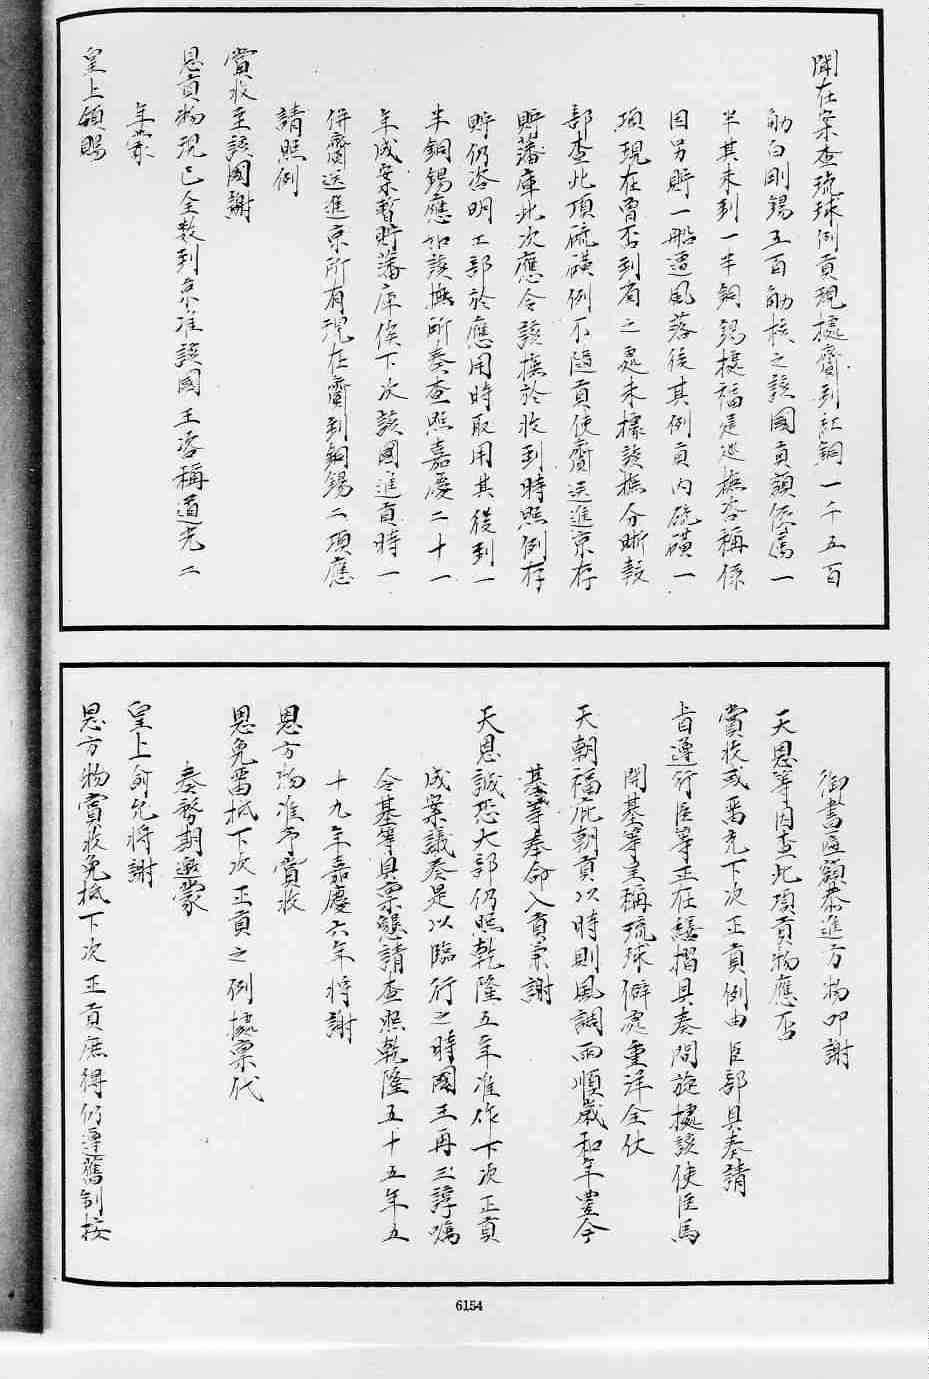 開在案查琉球例貢現據齎到紅銅一千五百
觔白剛錫五百觔核之該國貢額僅馬一
半其未到一半銅錫據福建巡撫咨稱係
因另貯一船遭風落後其例貢內硫磺一
項現在曾否到省之處未據該撫分晰報
部查此項硫磺例不隨貢使齎送進京存
貯藩庫此次應令該撫於收到時照例存
貯仍咨明工部於應用時取用其後到一
半銅錫應如該撫所奏查照嘉慶二十一
年成案暫貯藩庫俟下次該國進貢時一
併齎送進京所有現在齎到銅錫二項應
請照例
賞收至該國謝
恩貢物現已全數到京准該國王咨稱道光二
年蒙
皇上頒賜
御書匾額恭進方物叩謝
天恩等因查此項貢物應否
賞收或留充下次正貢例由臣部具奏請
旨遵行臣等正在繕摺具奏間旋據該使臣馬
開基等呈稱琉球僻處重洋全仗
天朝福庇朝貢以時則風調雨順歲和年豐今
基等奉命入貢業謝
天恩誠恐大部仍照乾隆五年准作下次正貢
成案議奏是以臨行之時國王再三諄囑
令基等具稟懇請查照乾隆五十五年五
十九年嘉慶六年將謝
恩方物准予賞收
恩免留抵下次正貢之例據稟代
奏幣期邀蒙
皇上俞允將謝
恩方物賞收免抵下次正貢庶得仍遵舊制按
6154